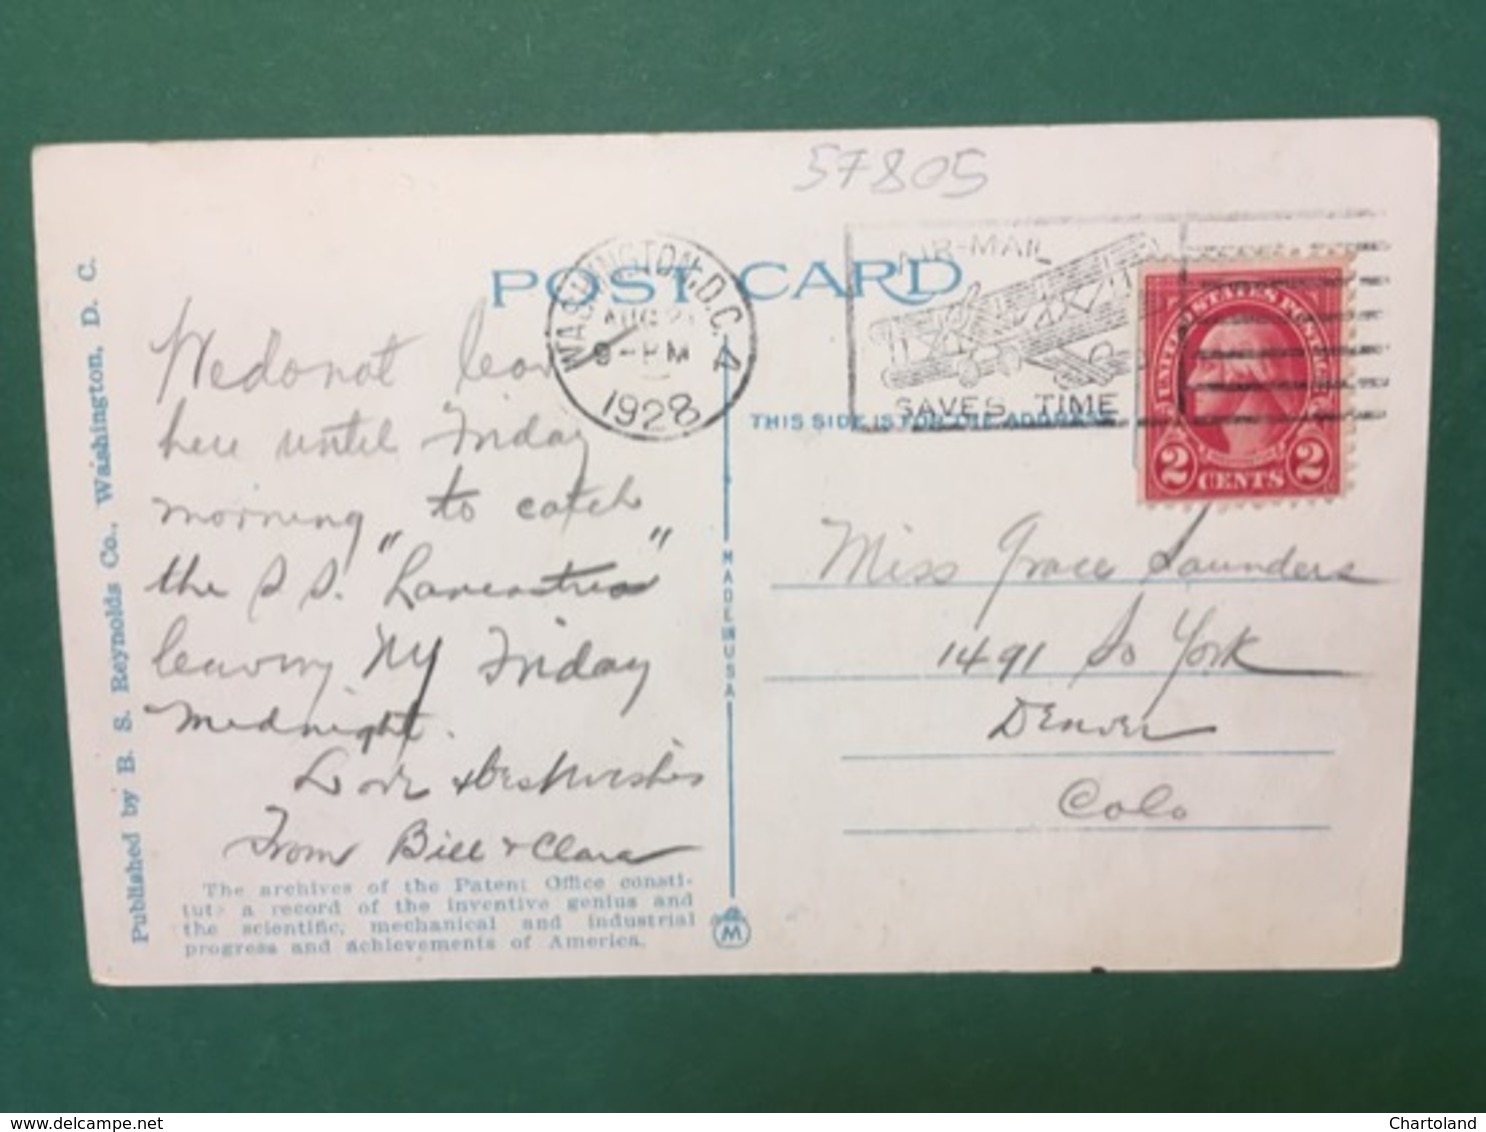 57805
POST CARD
WASHINGTON, D.C. 4
AUG 2
9-PM
1928
AIR-MAIL
SAVES TIME
UNITED STATES POSTAGE
2 CENTS 2
THIS SIDE IS FOR THE ADDRESS
We do not leav
here until Friday
morning to catch
the S S. "Lancastria"
leaving NY Friday
Midnight.
Love & best wishes
From Bill & Clara
Miss Grace Saunders
1491 So York
Denver
Colo
MADE IN USA
Published by B. S. Reynolds Co., Washington, D. C.
The archives of the Patent Office consti-
tute a record of the inventive genius and
the scientific, mechanical and industrial
progress and achievements of America.
M
delcampe.net
Chartoland